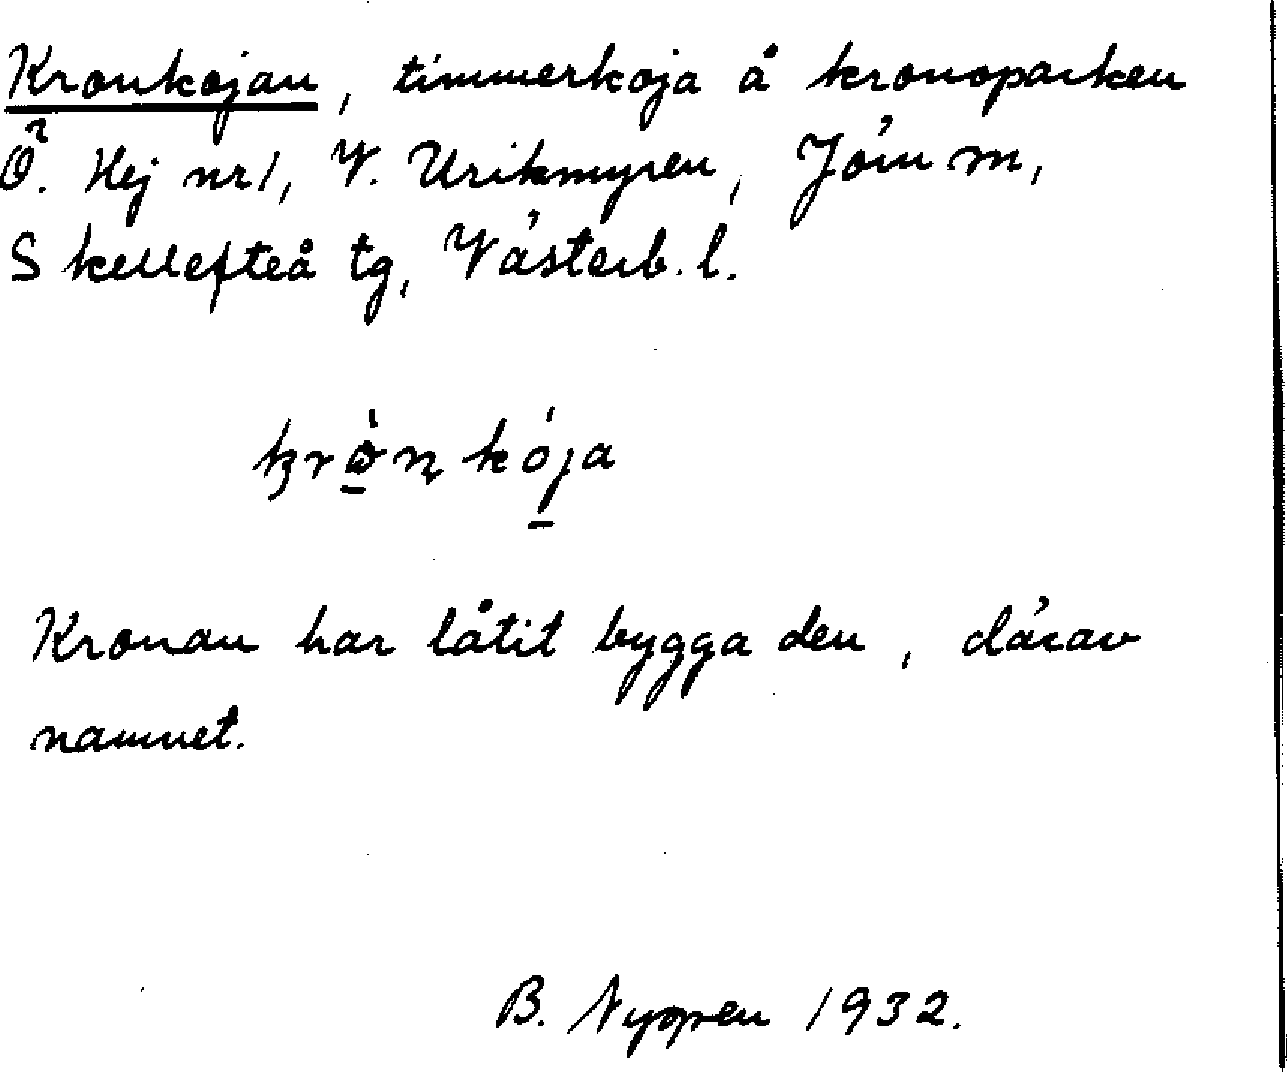 Kronkojan, timmerkoja å kronoparken
Ö. Hej nr 1, V. Urikmyren, Jörn sn,
Skellefteå tg, Västerb. l.
Kronan har låtit bygga den, därav
namnet.
B. Nyppen 1932.